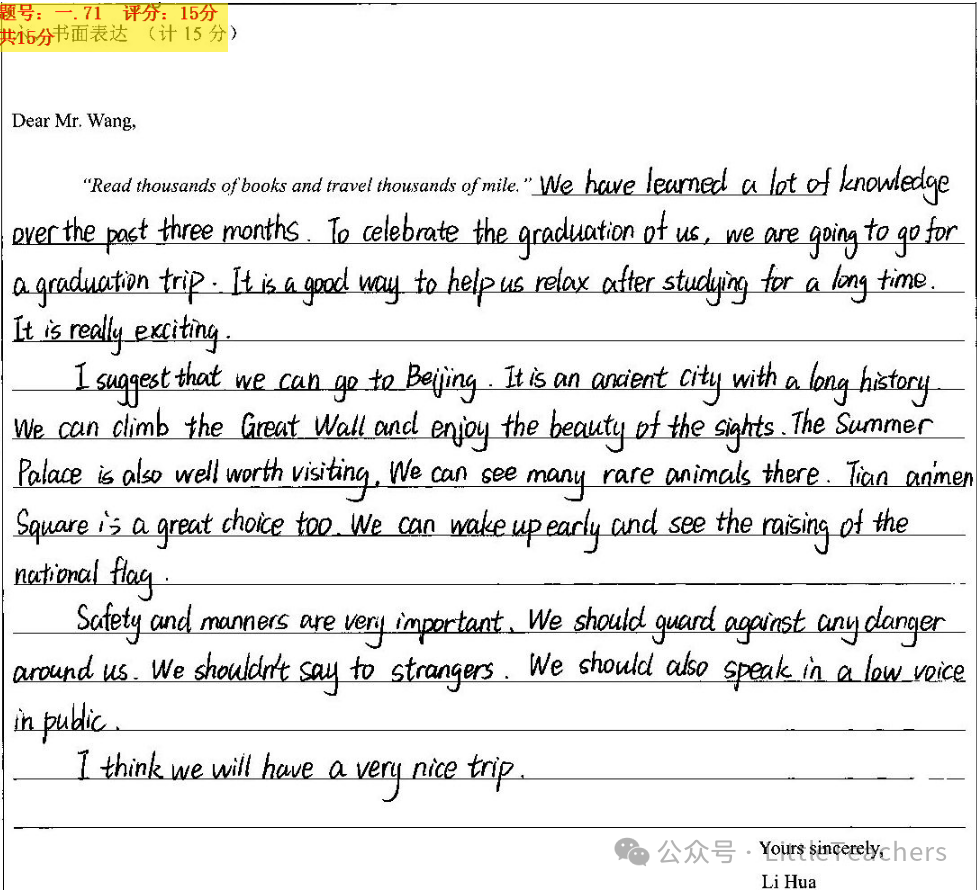 题号：一.71 评分：15分
共15分 书面表达 （计 15 分）
Dear Mr. Wang,
“Read thousands of books and travel thousands of mile.” We have learned a lot of knowledge
over the past three months. To celebrate the graduation of us, we are going to go for
a graduation trip. It is a good way to help us relax after studying for a long time.
It is really exciting.
I suggest that we can go to Beijing. It is an ancient city with a long history.
We can climb the Great Wall and enjoy the beauty of the sights. The Summer
Palace is also well worth visiting. We can see many rare animals there. Tian an'men
Square is a great choice too. We can wake up early and see the raising of the
national flag.
Safety and manners are very important. We should guard against any danger
around us. We shouldn't say to strangers. We should also speak in a low voice
in public.
I think we will have a very nice trip.
Yours sincerely,
公众号 · LittleTeachers
Li Hua